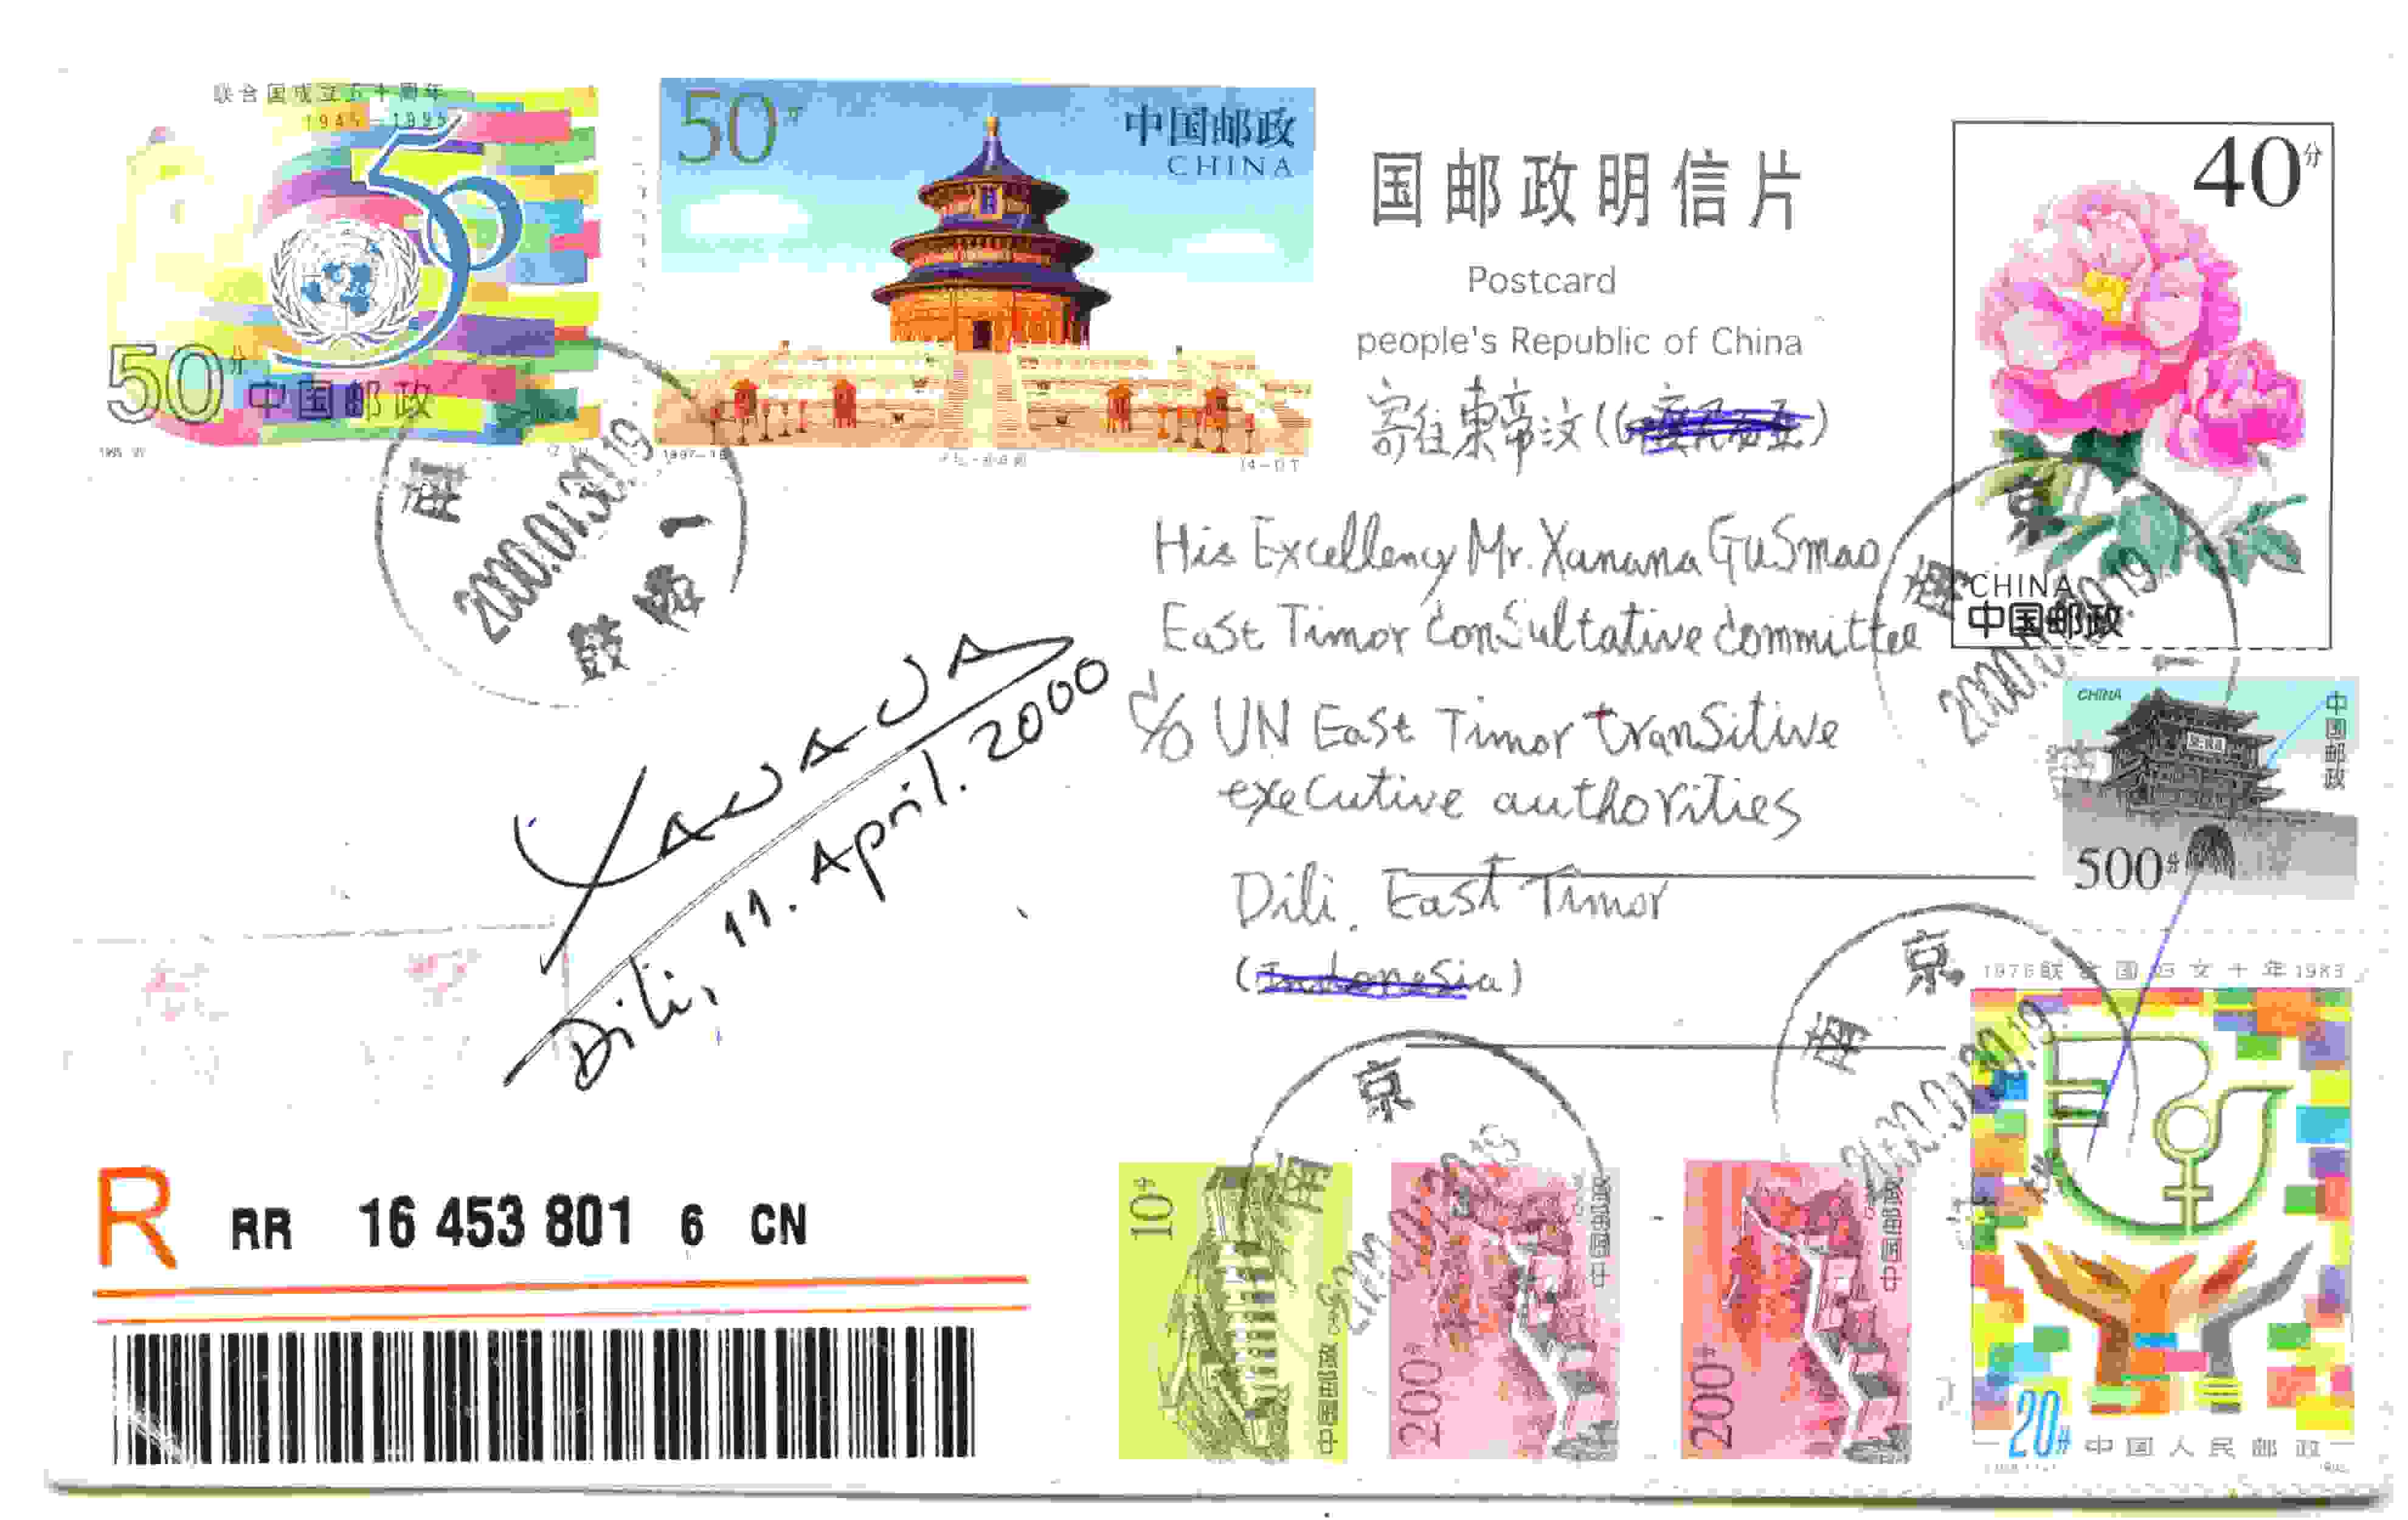 联合国成立五十周年
1945-1995
50分 中国邮政
50分
中国邮政
CHINA
1997-18
国邮政明信片
Postcard
people's Republic of China
40分
CHINA
中国邮政
寄往東帝汶(
His Excellency Mr. Xanana GuSmao
East Timor Consultative Committee
c/o UN East Timor transitive
executive authorities
Dili, East Timor
(Indonesia)
南
2000.01.30.19
鼓楼
京
南
2000.01.30.19
XANANA
Dili, 11. April. 2000
CHINA
中国邮政
500分
京
南
2000.01.30.19
1976联合国妇女十年1985
20分 中国人民邮政
京
南
10分
中国邮政
200分
中国邮政
200分
中国邮政
R RR 16 453 801 6 CN